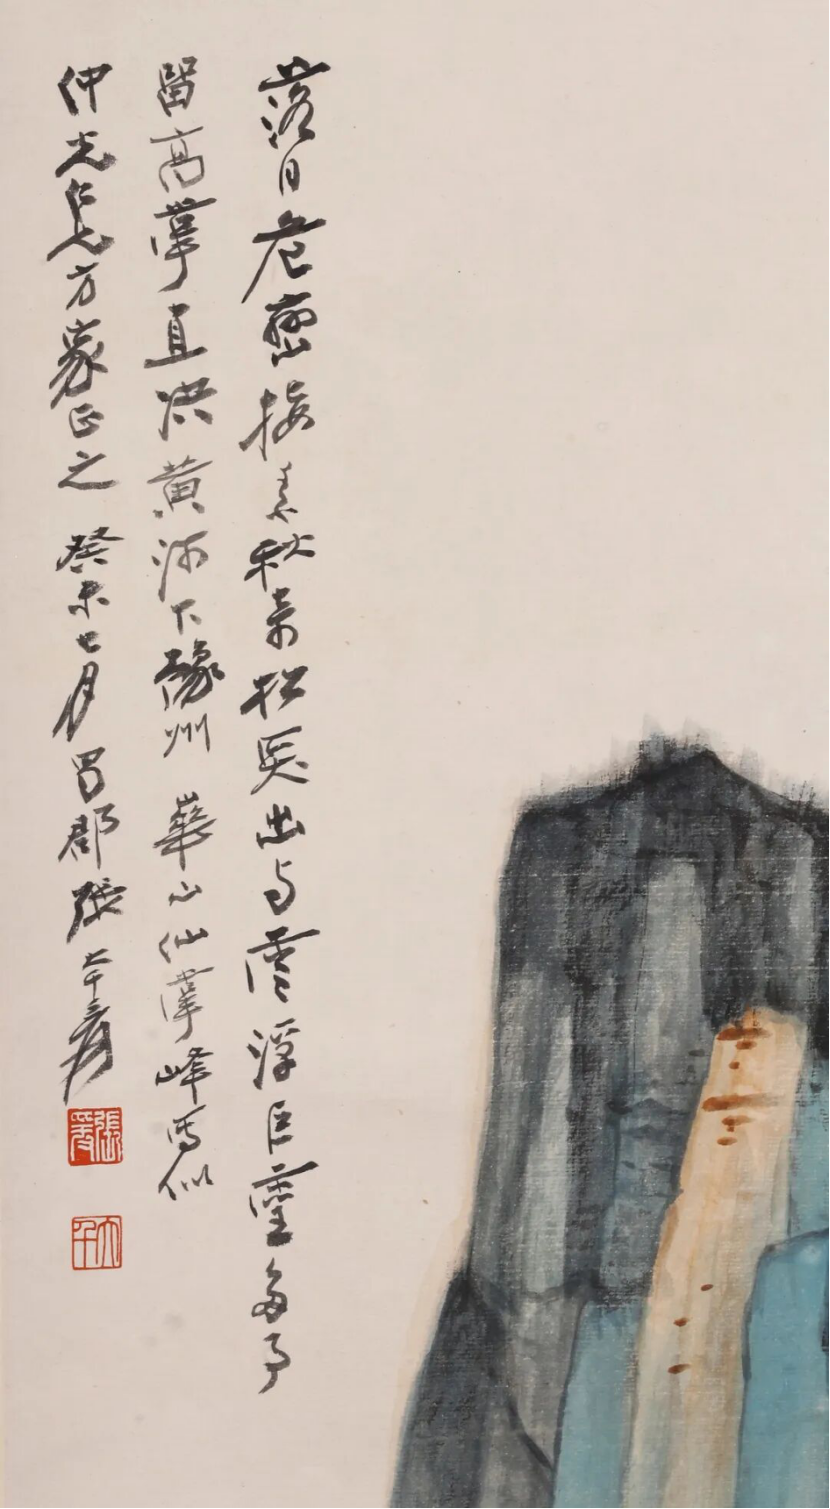 落日危巒接素秋奇松出与雲浮巨靈多事
留高掌直決黃河下豫州 華山仙掌峰寫似
仲光仁兄方家正之 癸未七月蜀郡張大千爰
張爰
大千